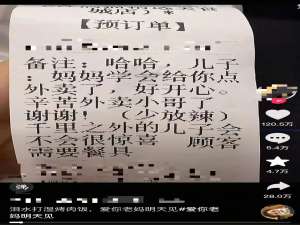 城店)*
【预订单】
备注：哈哈，儿子
：妈妈学会给你点
外卖了，好开心。
辛苦外卖小哥了
谢谢！（少放辣）
千里之外的儿子会
不会很惊喜 顾客
需要餐具
120.5万
5.4万
4.7万
28.0万
泪水打湿烤肉饭，爱你老妈明天见#爱你老
妈明天见